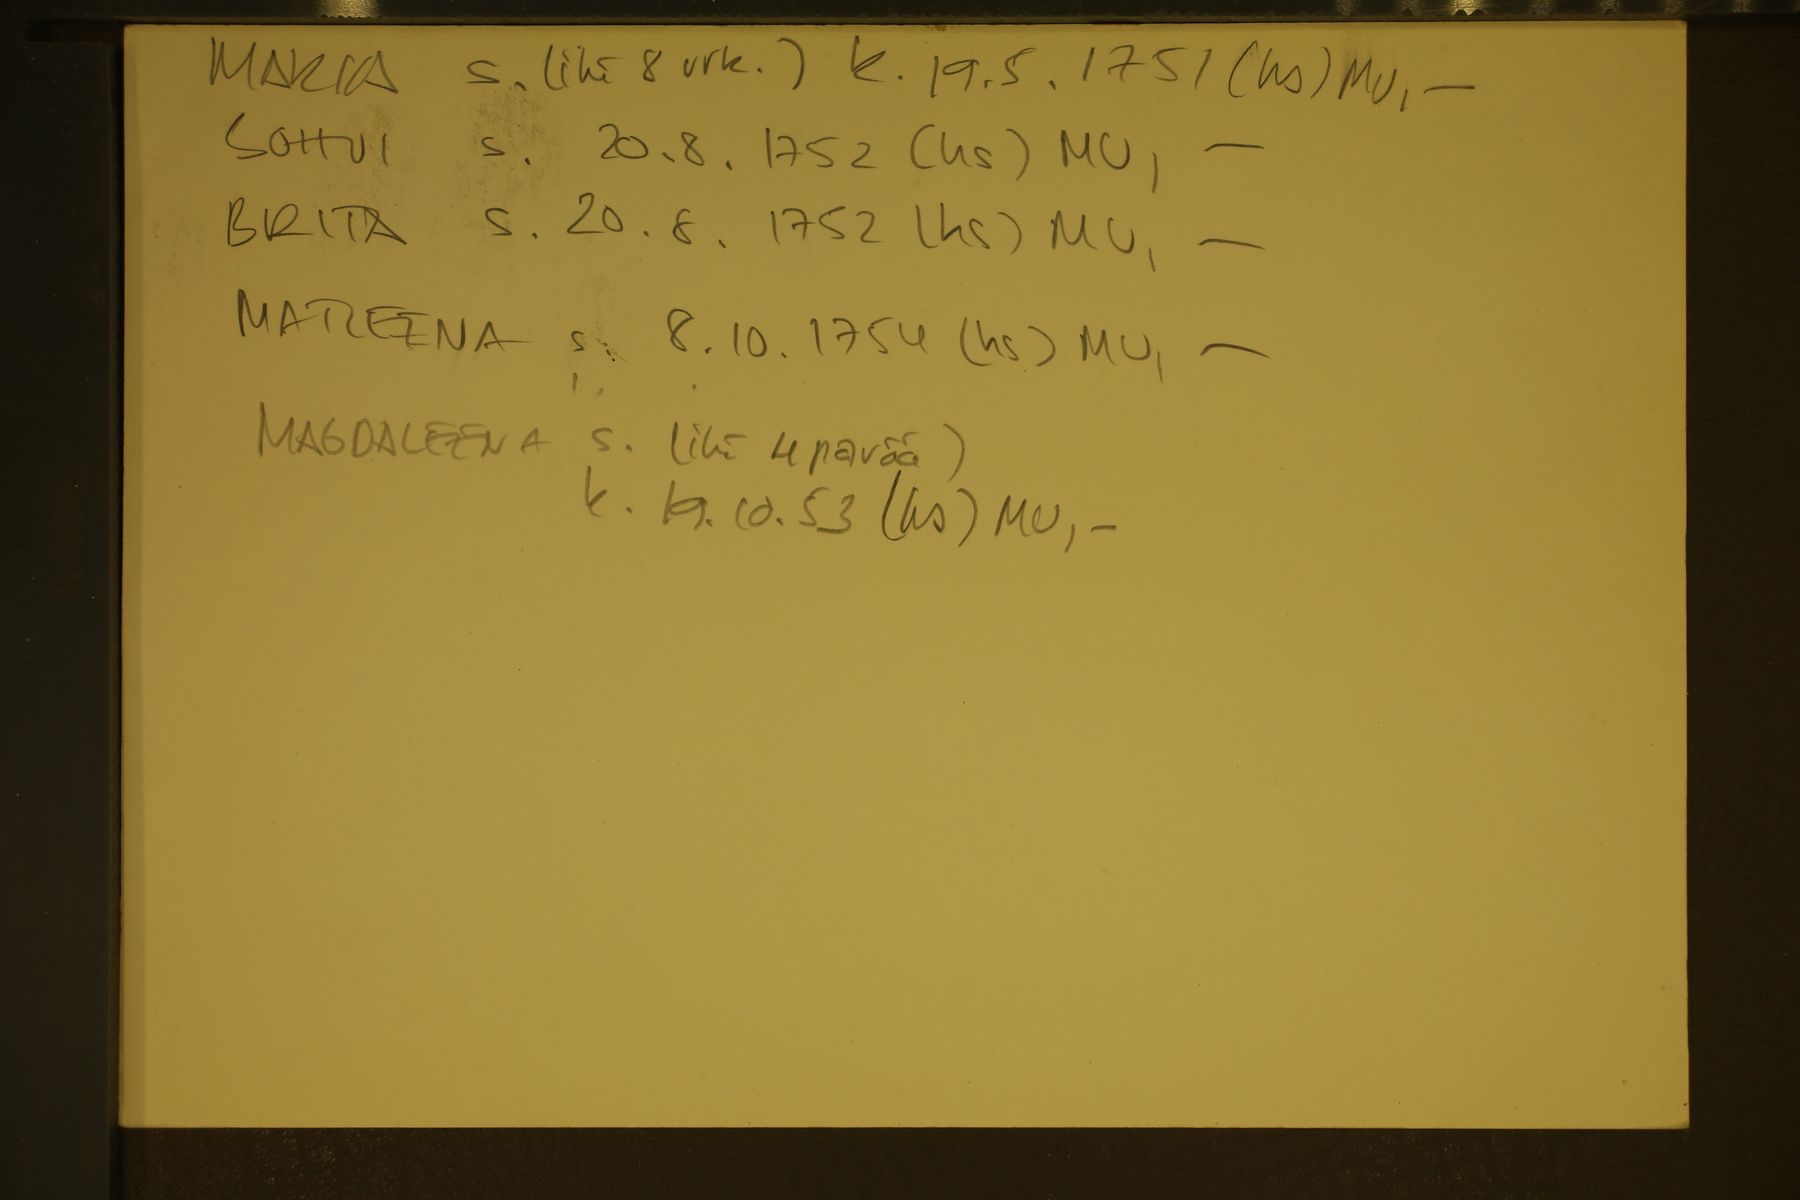 MARIA s. (ikä 8 vrk.) k. 19.5. 1751 (hs) MU, —
SOHVI s. 20.8. 1752 (hs) MU, —
BRITA s. 20.8. 1752 (hs) MU, —
MATLEENA s. 8.10. 1754 (hs) MU, —
MAGDALEENA s. (ikä 4 pävää)
k. 19.10.53 (hs) MU, —